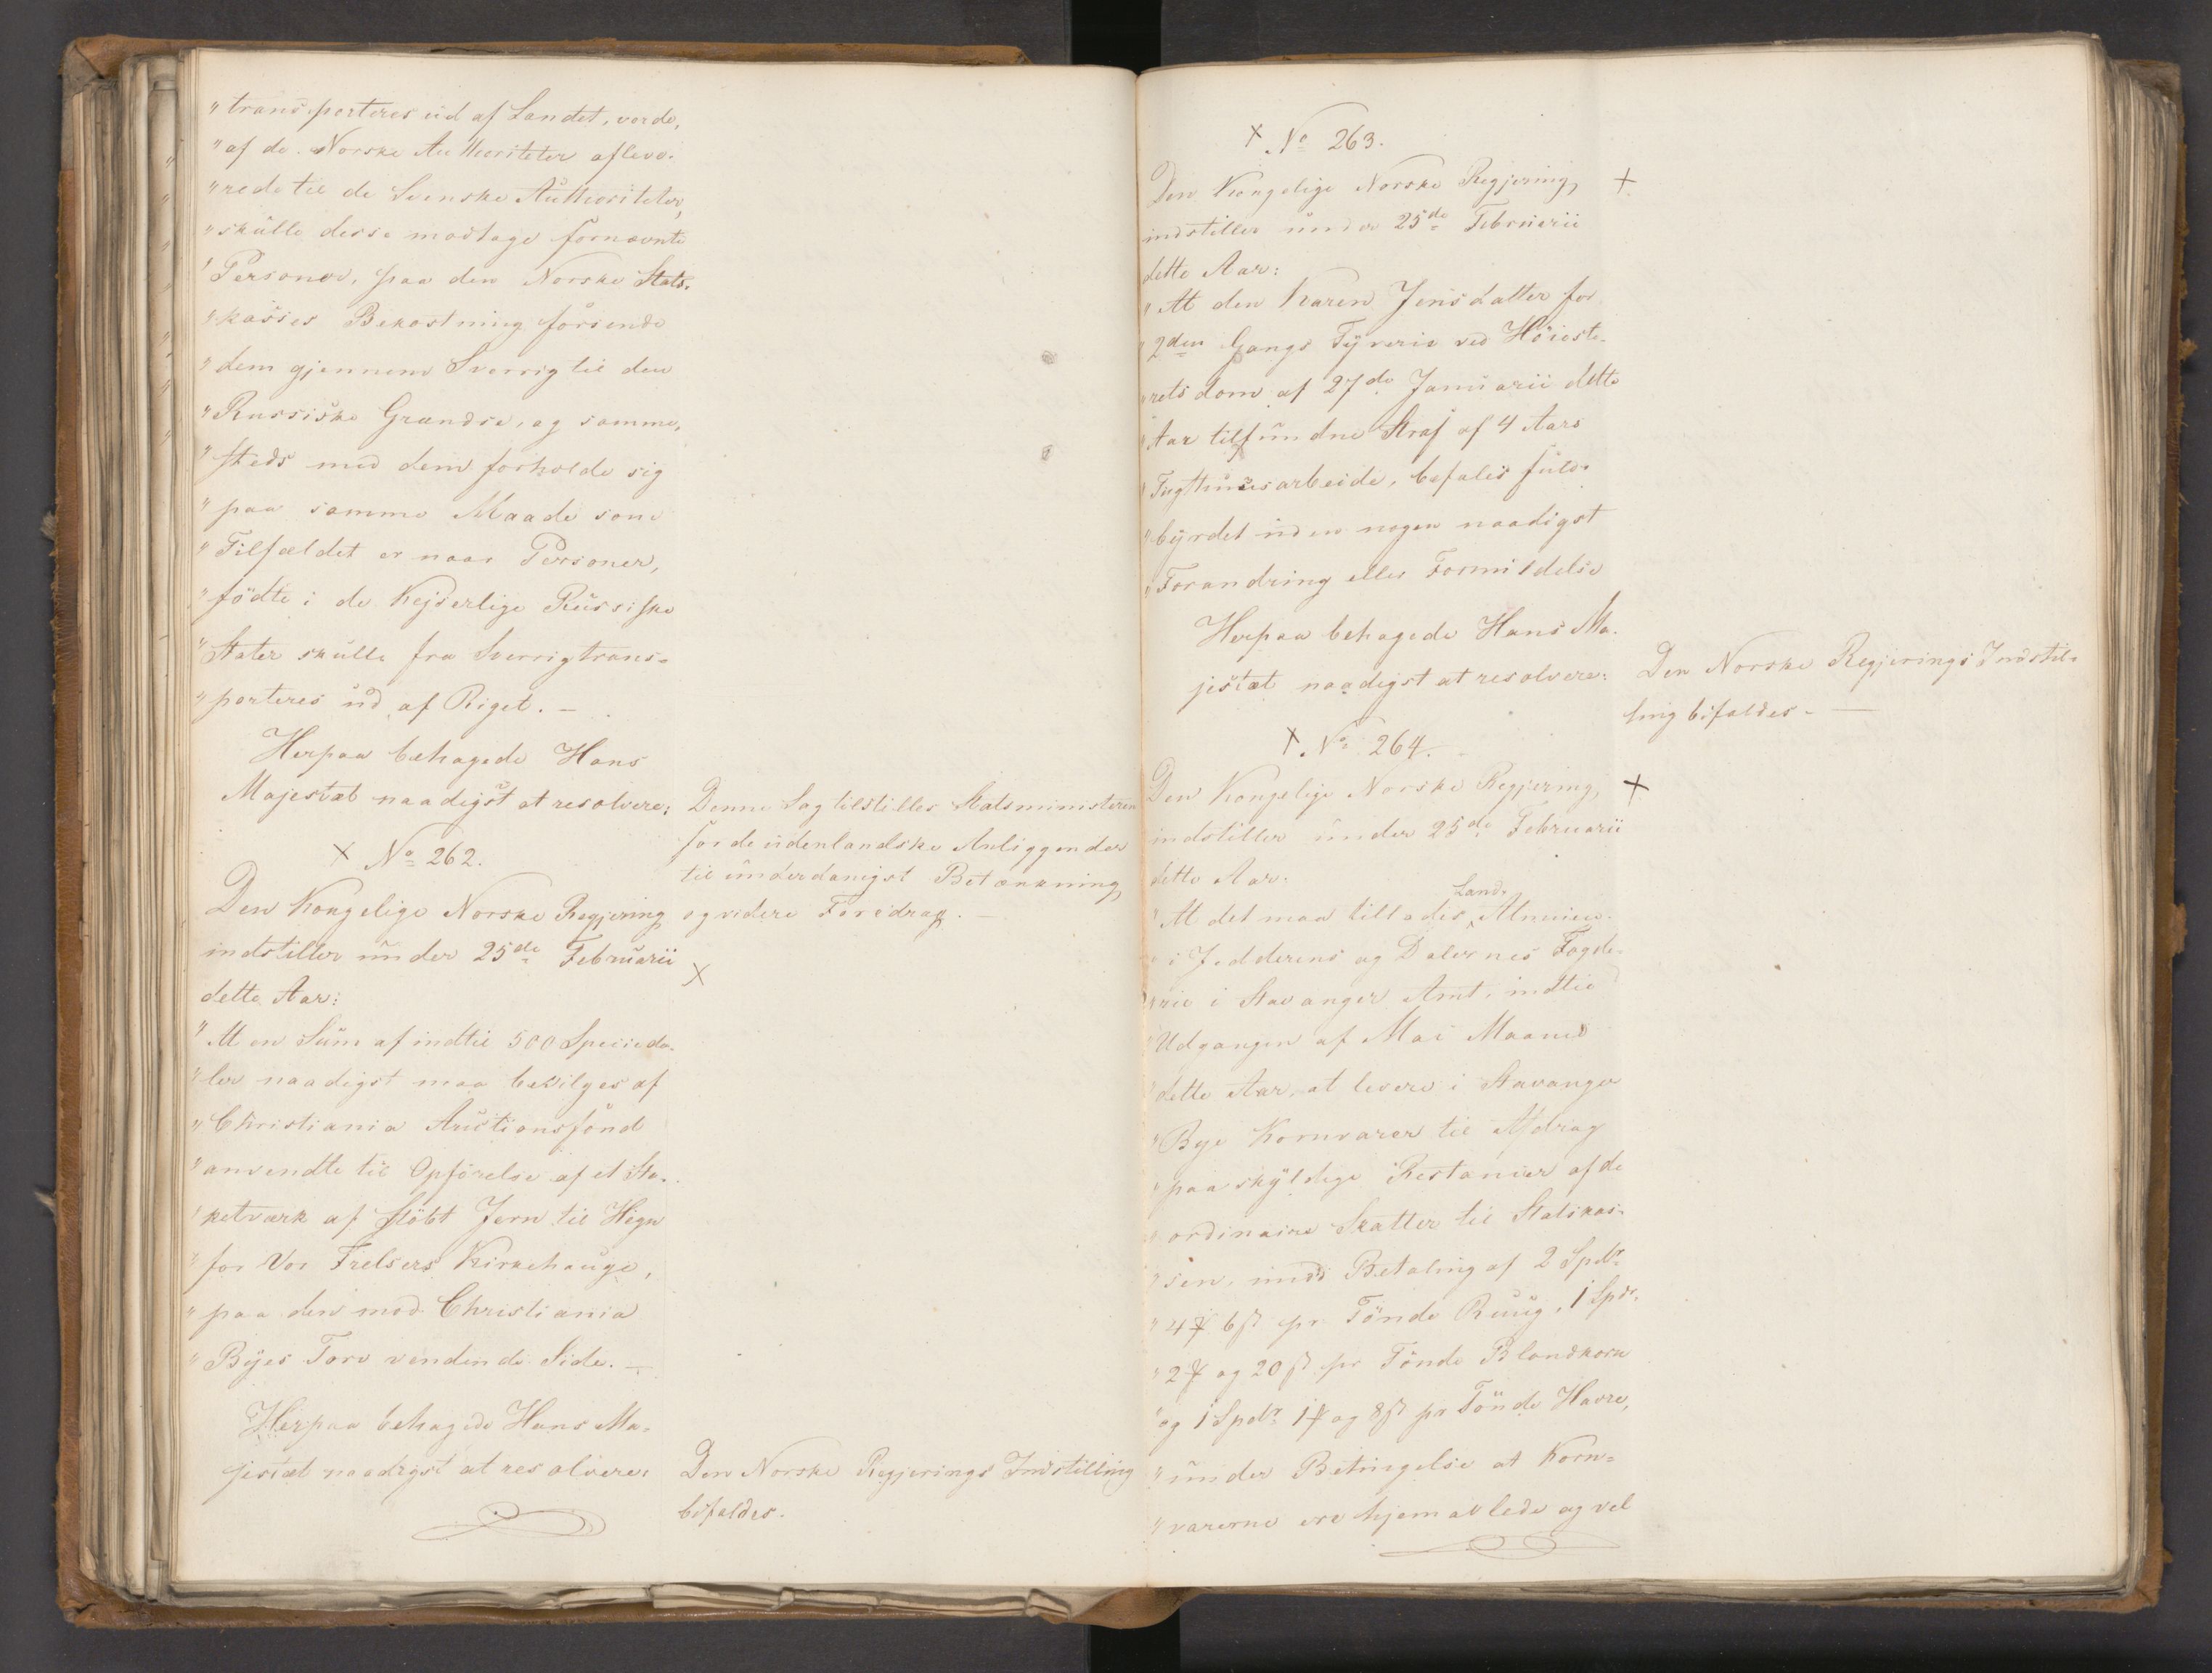 "transporteres ud af Landet, vorde,
"af de Norske Authoriteter afleve-
"rede til de Svenske Authoriteter,
"skulle disse modtage fornævnte
"Personer, paa den Norske Stats-
"kasses Bekostning forsende
"dem gjennem Sverrig til den
"Russiske Grændse, og samme,
"steds med dem forholde sig
"paa samme Maade som
"Tilfældet er naar Personer,
"födte i de Kejserlige Russiske
"Stater skulle fra Sverrig trans-
"porteres ud af Riget. —
Herpaa behagede Hans
Majestæt naadigst at resolvere:
Denne Sag tilstilles Statsministeren
for de udenlandske Anliggender
til underdanigst Betænkning
og videre Foredrag. —
+ No 262.
Den Kongelige Norske Regjering
indstiller under 25de Februarii
dette Aar:
+
"At en Sum af indtil 500 Specieda-
"ler naadigst maa bevilges af
"Christiania Auctionsfond
"anvendte til Opförelse af et Sta-
"ketværk af stöbt Jern til Hegn
"for Vor Frelsers Kirkehauge,
"paa den mod Christiania
"Byes Torv vendende Side. —
Herpaa behagede Hans Ma-
jestæt naadigst at resolvere:
Den Norske Regjerings Indstilling
bifaldes.
+ No 263.
Den Kongelige Norske Regjering
+
indstiller under 25de Februarii
dette Aar:
"At den Karen Jensdatter for
"2den Gangs Tyverie ved Höieste-
"retsdom af 27de Januarii dette
"Aar tilfundne Straf af 4 Aars
"Tugthuusarbeide, befales fuld-
"byrdet uden nogen naadigst
"Forandring eller Formildelse
Herpaa behagede Hans Ma-
jestæt naadigst at resolvere:
Den Norske Regjerings Indstil-
ling bifaldes. —
+ No 264.
Den Kongelige Norske Regjering,
+
indstiller under 25de Februarii
dette Aar.
Land-
"At det maa tillades Almuen
"i Jedderens og Dalernes Fogde-
"rie i Stavanger Amt, indtil
"Udgangen af Mai Maaned
"dette Aar, at levere i Stavanger
"Bye Kornvarer til Afdrag
"paa skyldige Restancer af de
"ordinaire Skatter til Statskas-
"sen, imod Betaling af 2 Spdr
"4 ₰ 6 ß pr Tönde Ruug, 1 Spdr.
"2 ₰ og 20 ß pr Tönde Blandkorn
"og 1 Spdr 1 ₰ og 8 ß pr Tönde Havre,
"under Betingelse at Korn-
"varerne ere hjemavlede og vel